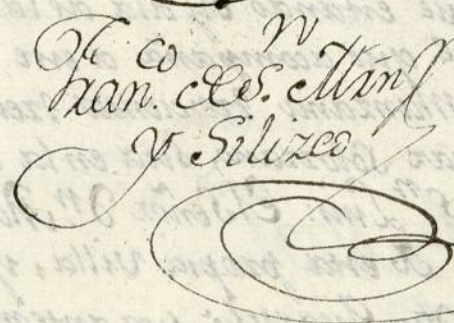 Fran.co de S.n Mrñ
y Silizeo